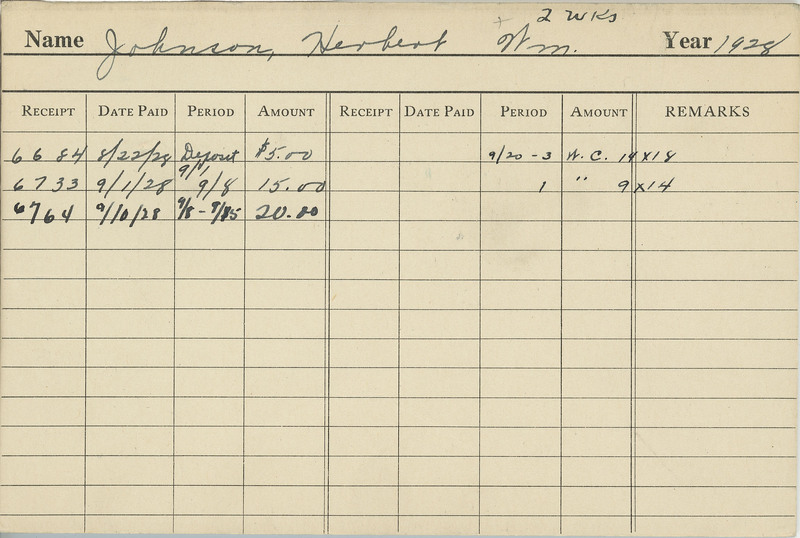 2 WKS
Name Johnson, Herbert Wm. Year 1928
RECEIPT DATE PAID PERIOD AMOUNT RECEIPT DATE PAID PERIOD AMOUNT REMARKS
6684 8/22/28 Deposit $5.00 9/20-3 W.C. 14x18
6733 9/1/28 9/1 9/8 15.00 1 " 9x14
6764 9/10/28 9/8-9/15 20.00